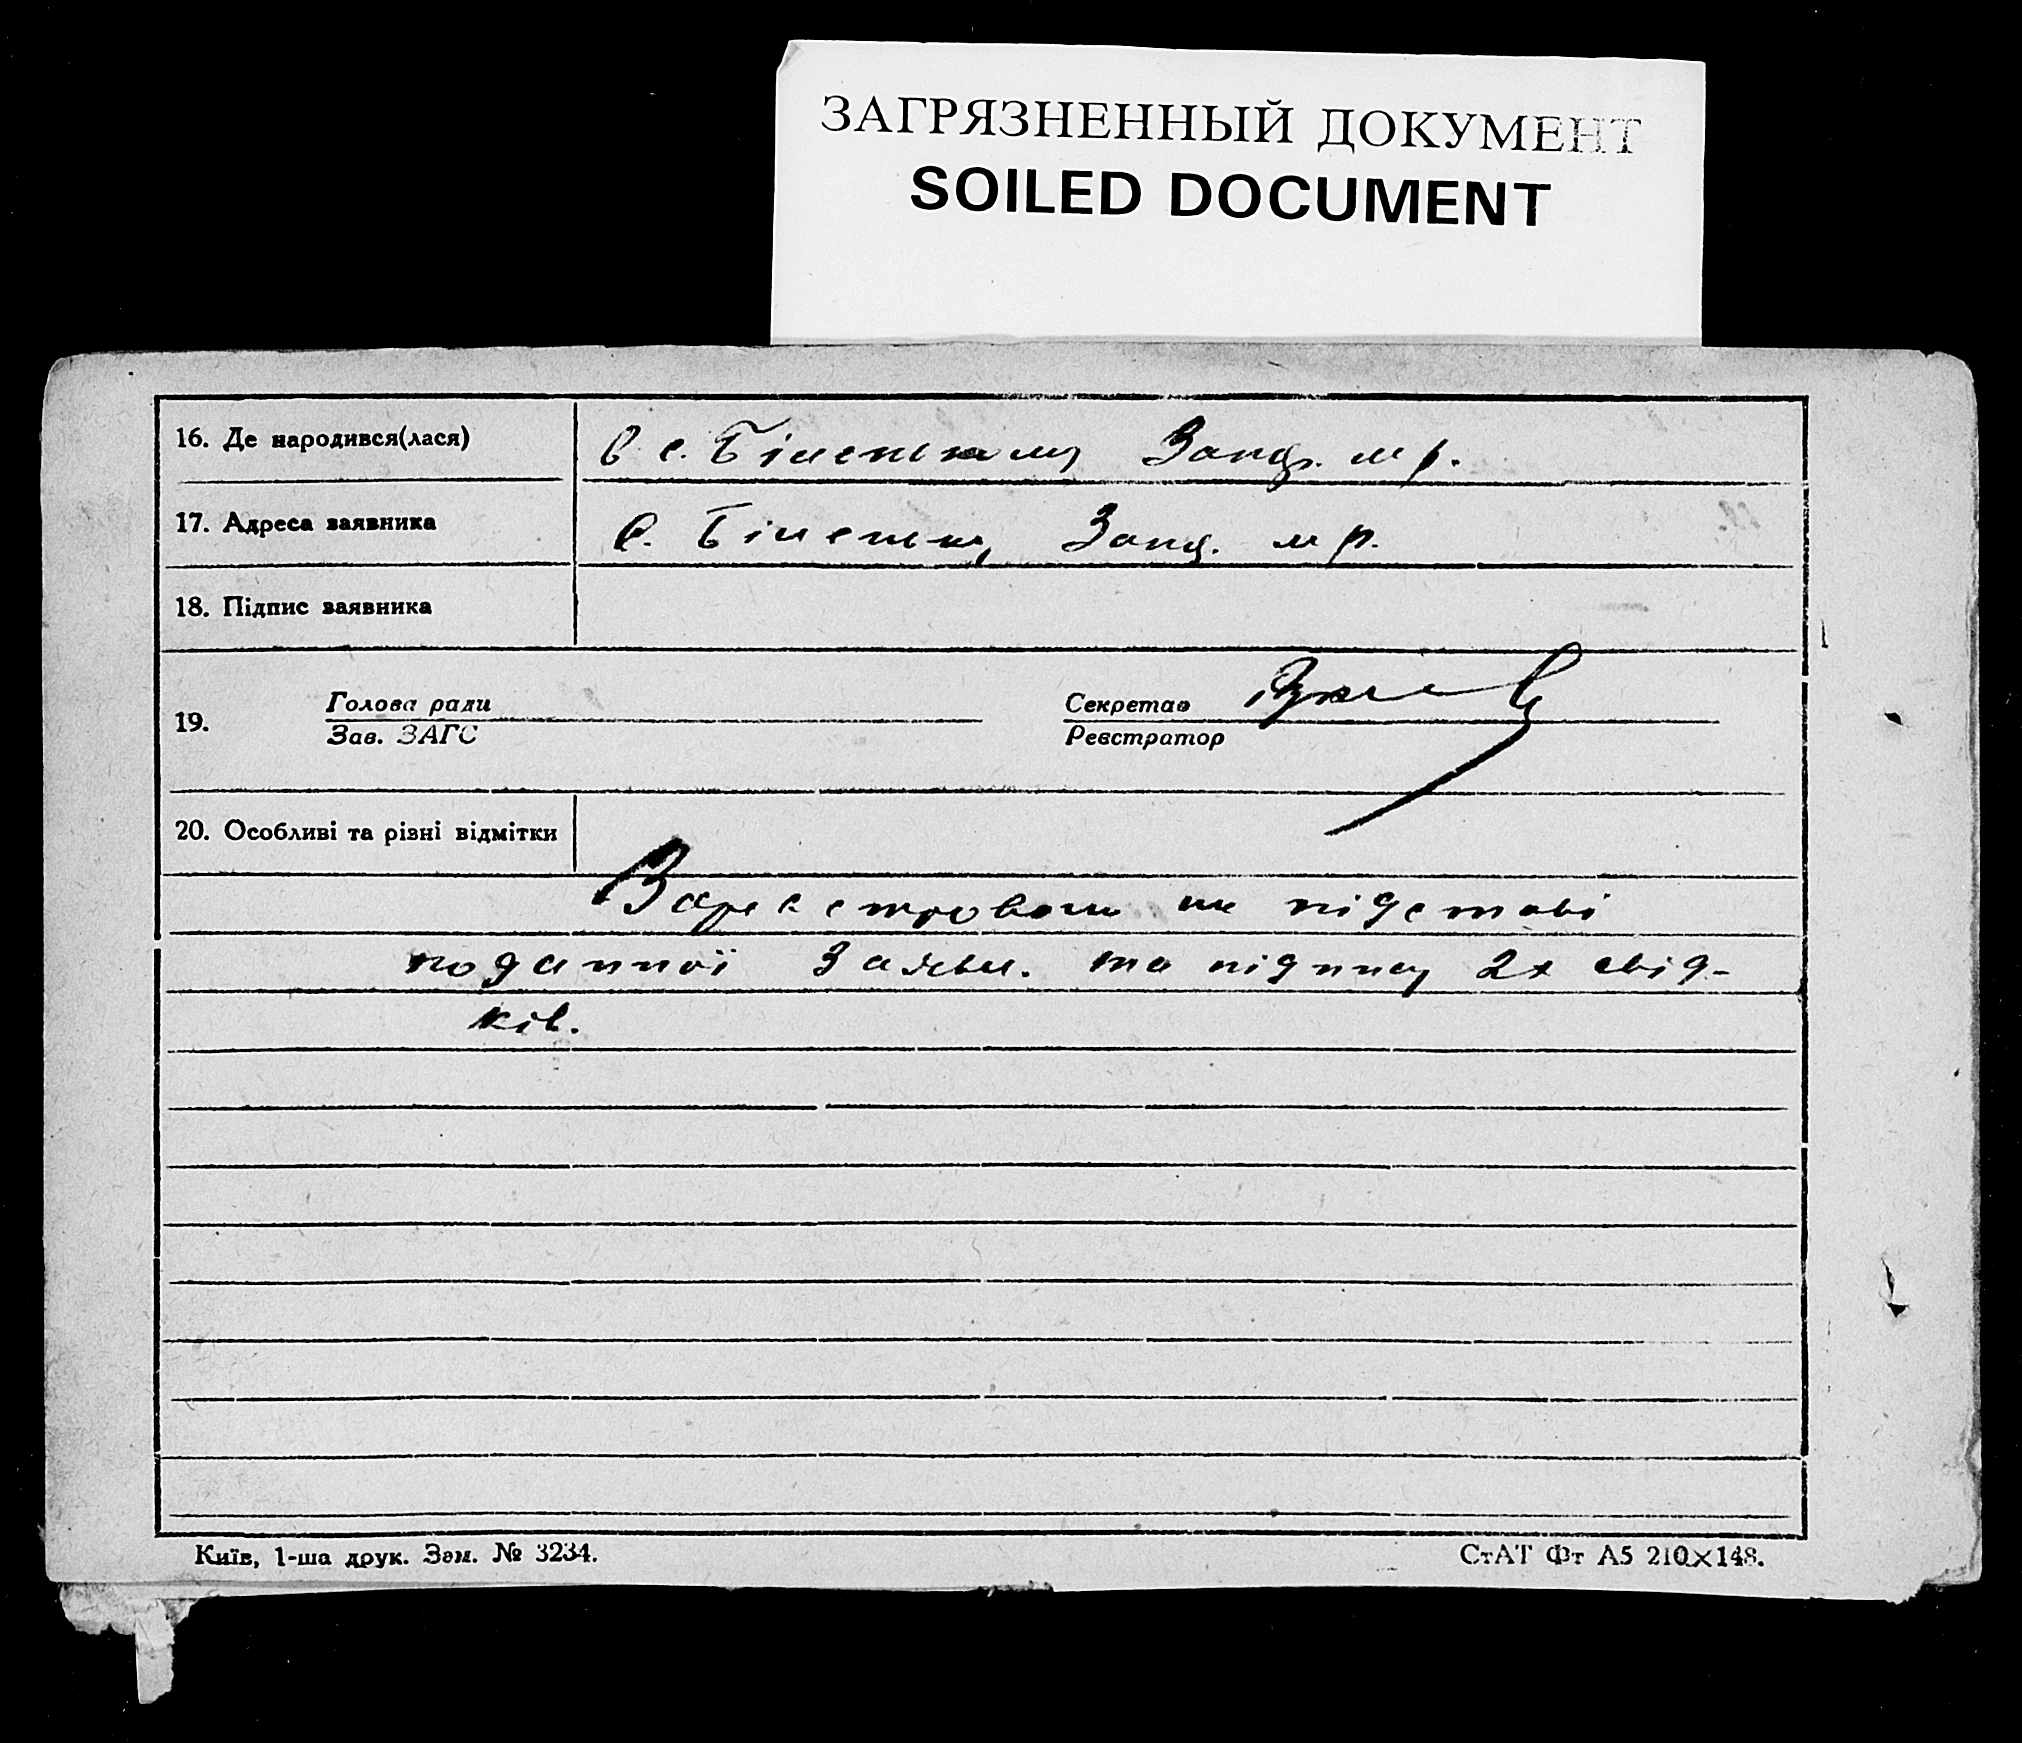 ЗАГРЯЗНЕННЫЙ ДОКУМЕНТ
SOILED DOCUMENT
16. Де народився(лася)
в с. Зап. м р.
17. Адреса заявника
с. Зап. м р.
18. Підпис заявника
19.
Голова ради
Зав. ЗАГС
Секретар
Реєстратор
20. Особливі та різні відмітки
на підставі
поданної заяви. та підпису 2х свід-
ків.
Київ, 1-ша друк. Зам. № 3234.
СтАТ Фт А5 210×148.